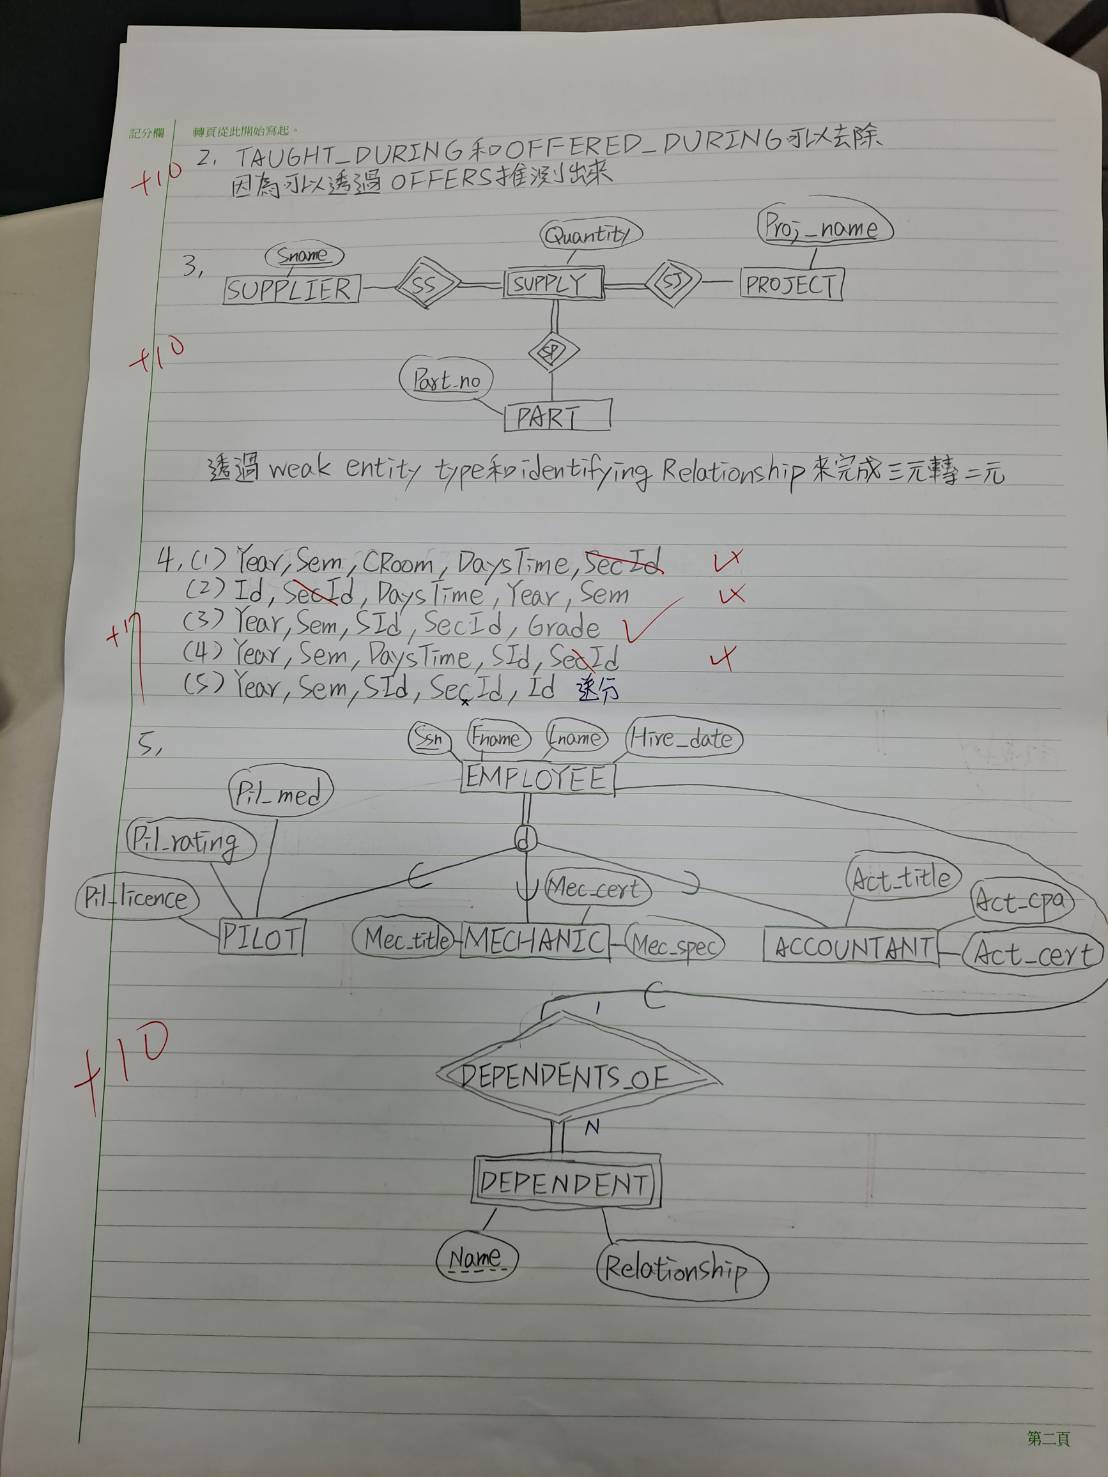 記分欄 轉頁從此開始寫起。
+10
2. TAUGHT_DURING和OFFERED_DURING可以去除
因為可以透過OFFERS推測出來
3.
Sname
Quantity
Proj_name
SUPPLIER
SS
SUPPLY
SJ
PROJECT
+10
SP
Part_no
PART
透過weak entity type和identifying Relationship來完成三元轉二元
4.(1) Year, Sem, CRoom, DaysTime, SecId
(2) Id, SecId, DaysTime, Year, Sem
(3) Year, Sem, SId, SecId, Grade
(4) Year, Sem, DaysTime, SId, SecId
(5) Year, Sem, SId, SecId, Id
5.
Ssn
Fname
Lname
Hire_date
EMPLOYEE
Pil_med
d
Pil_rating
Pil_licence
PILOT
Mec_cert
Mec_title
MECHANIC
Mec_spec
Act_title
Act_cpa
ACCOUNTANT
Act_cert
+10
1
DEPENDENTS_OF
N
DEPENDENT
Name
Relationship
第二頁